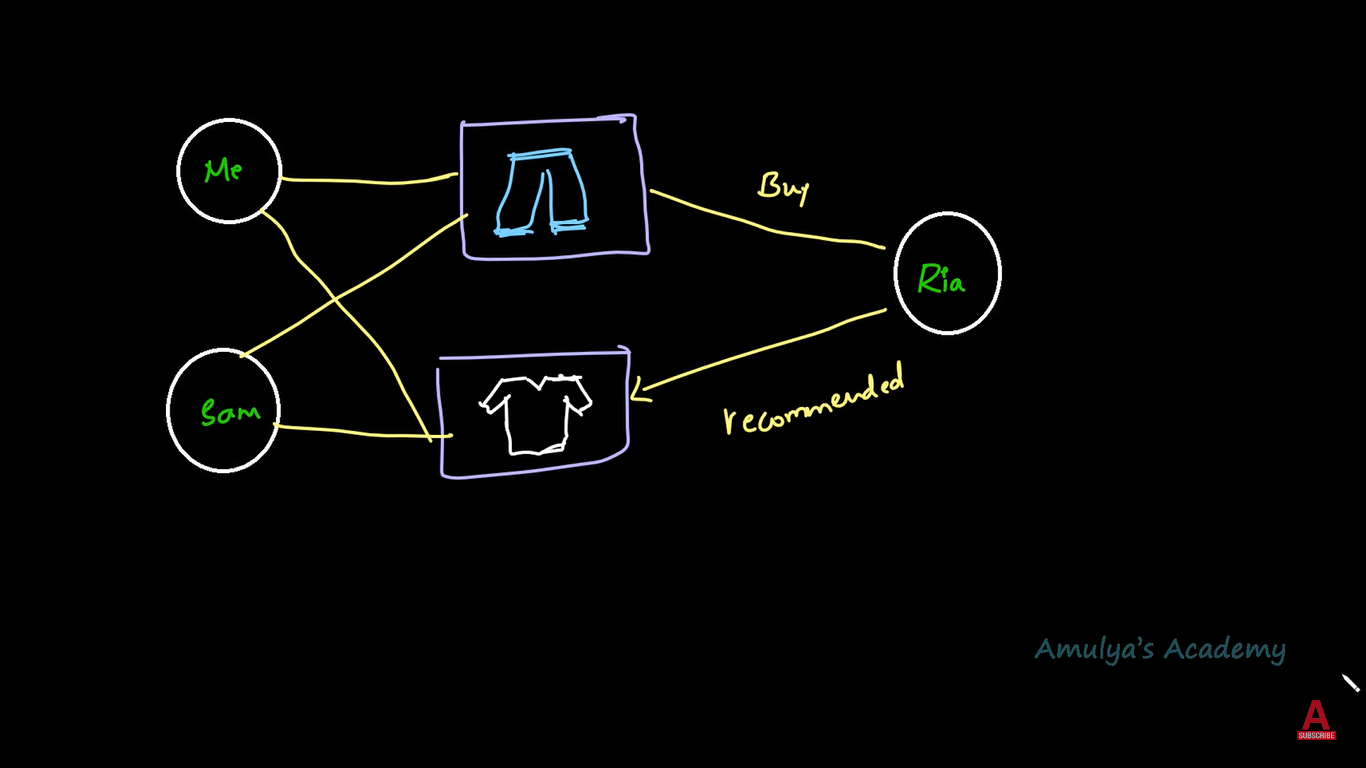 Me
Buy
Ria
Sam
recommended
Amulya's Academy
A
SUBSCRIBE